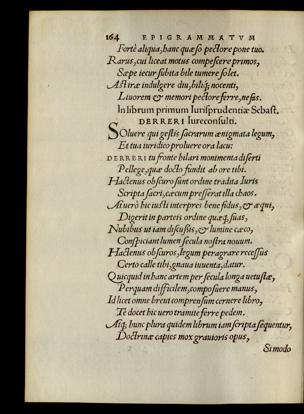 164 EPIGRAMMATVM
Fortè aliqua, hanc quæso pectore pone tuo.
Rarus, cui liceat motus compescere primos,
Sæpe iecur subita bile tumere solet.
Ast iræ indulgere diu, biliq; nocenti,
Liuorem & memori pectore ferre, nefas.
In librum primum Iurisprudentiæ Sebast.
DERRERI Iureconsulti.
Soluere qui gestis sacrarum ænigmata legum,
Et tua iuridico proluere ora lacu:
DERRERI tu fronte hilari monimenta diserti
Pellege, quæ docto fundit ab ore tibi.
Hactenus obscuro sunt ordine tradita Iuris
Scripta sacri, cæcum presserat illa chaos.
At uerò hic iusti interpres bene fidus, & æqui,
Digerit in parteis ordine quæq; suas,
Nubibus ut iam discussis, & lumine cæco,
Conspiciant lumen secula nostra nouum.
Hactenus obscuros, legum peragrare recessus
Certo calle tibi, gnaua iuuenta, datur.
Quicquid in hanc artem per secula longa uetustæ,
Perquam difficilem, composuere manus,
Id licet omne breui comprensum cernere libro,
Te docet hic uero tramite ferre pedem.
Atq; hunc plura quidem librum iam scripta sequentur,
Doctrinæ capies mox grauioris opus,
Si modo